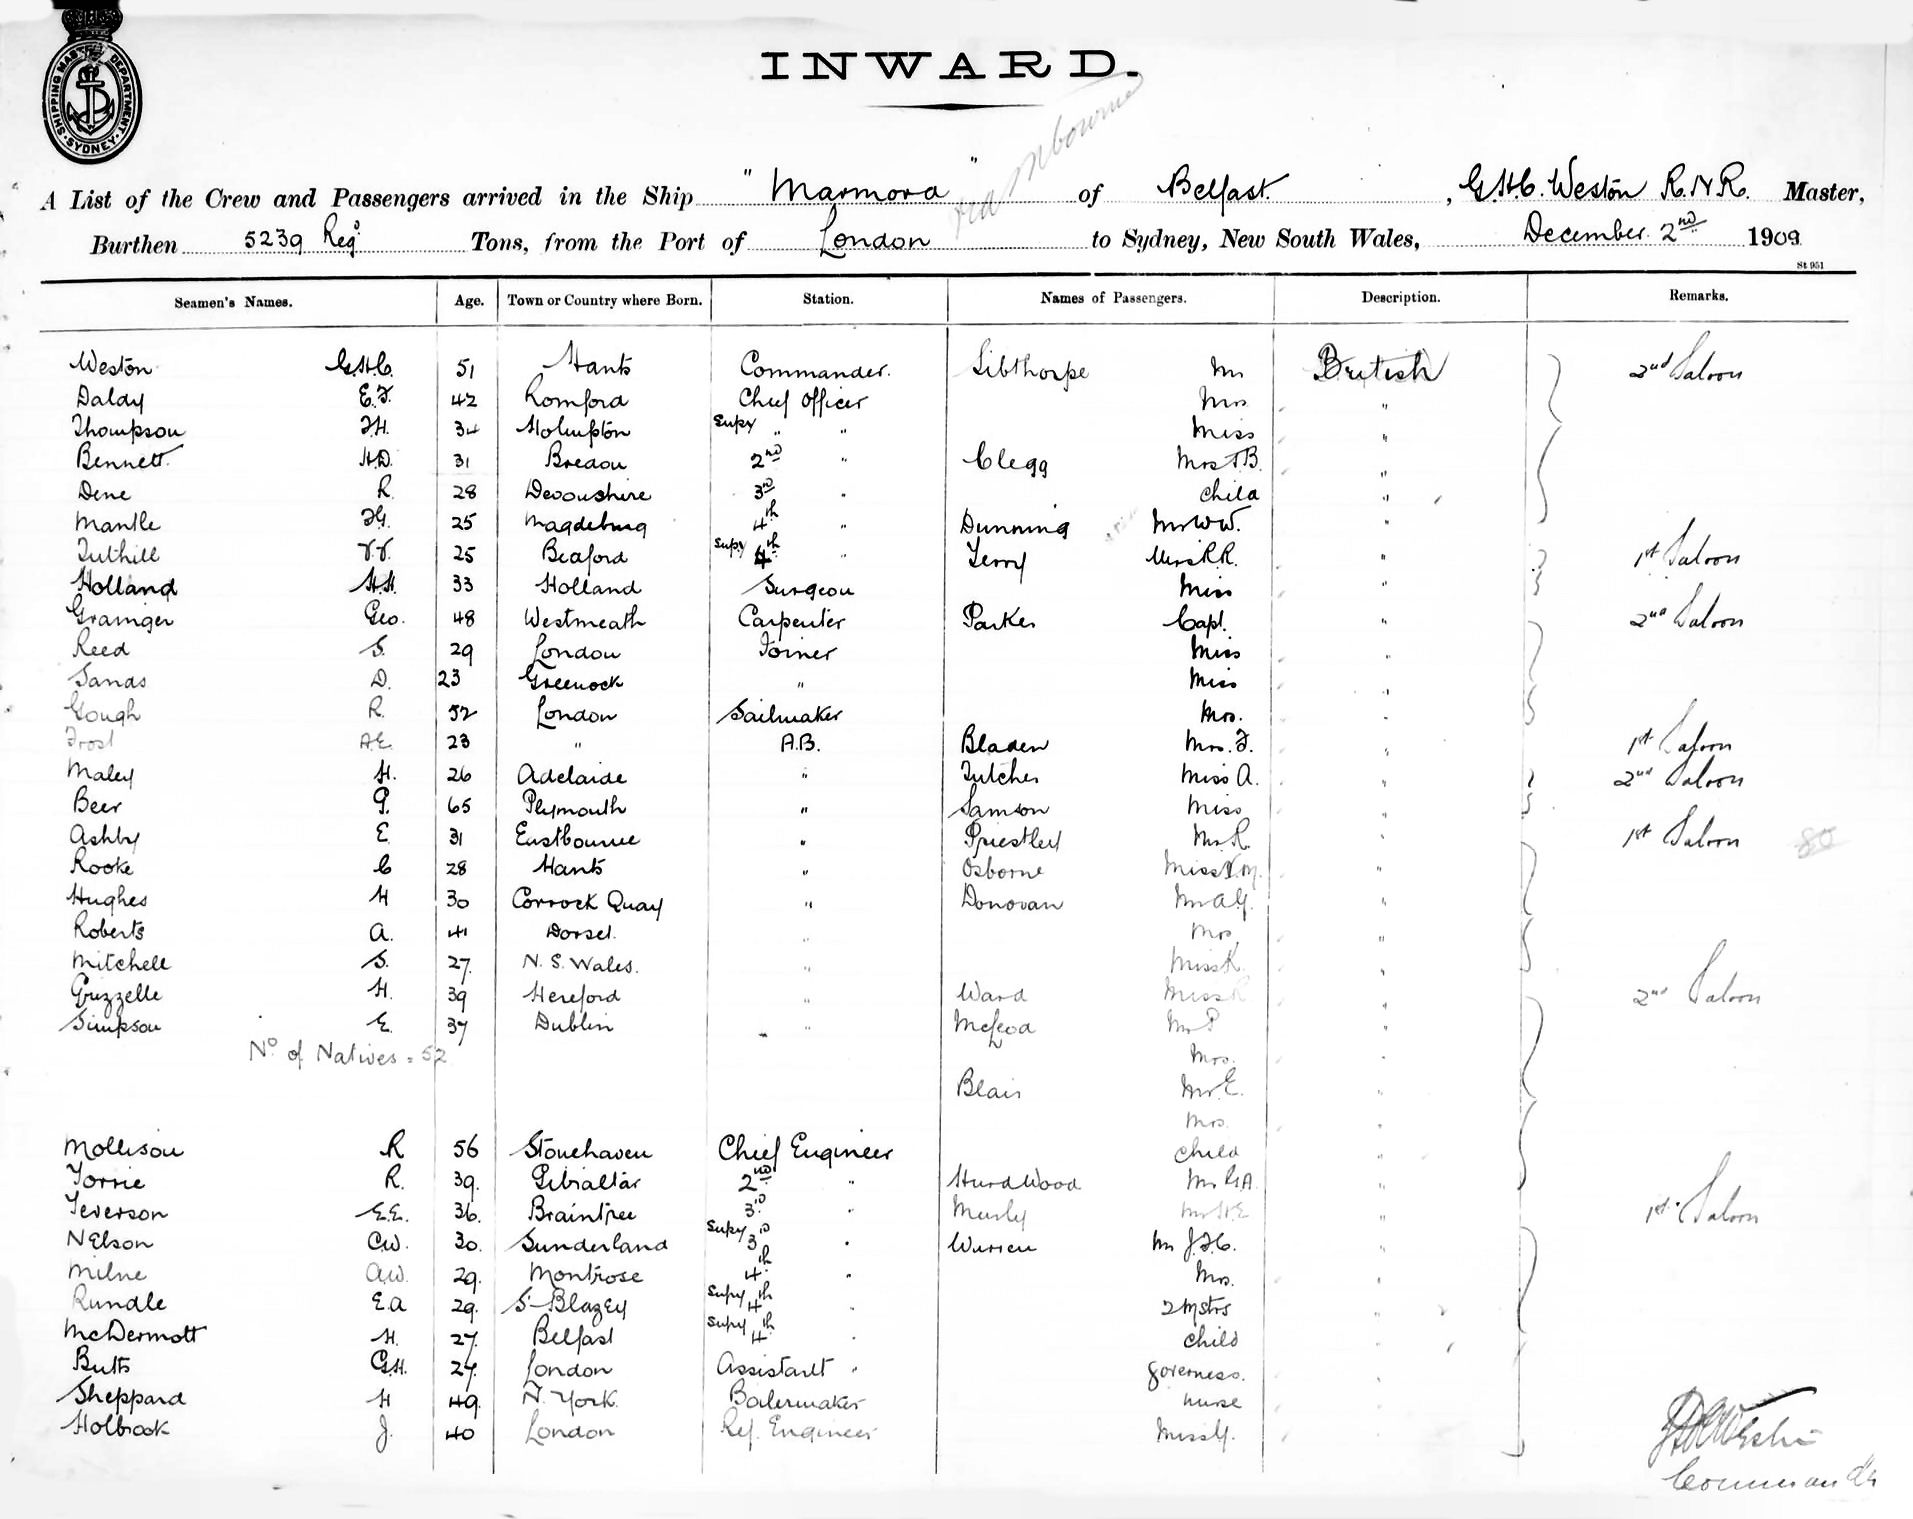 SHIPPING MASTERS DEPARTMENT · SYDNEY ·
INWARD.
via Mbourne
A List of the Crew and Passengers arrived in the Ship "Marmora" of Belfast. , G.H.C. Weston R.N.R. Master,
Burthen 5239 Regd. Tons, from the Port of London to Sydney, New South Wales, December 2nd 1909
St 951
Seamen's Names. Age. Town or Country where Born. Station. Names of Passengers. Description. Remarks.
Weston G.H.C. 51 Hants Commander. Sibthorpe Mr British 2nd Saloon
Daldy E.F. 42 Romford Chief Officer Mrs "
Thompson F.H. 34 Holmpton Supy " " Miss "
Bennett. H.D. 31 Bredon 2nd " Clegg Mrs T.B. "
Dene R. 28 Devonshire 3rd " Child "
Mantle F.G. 25 Magdeburg 4th " Dunning Mr W.W. "
Tuthill V.V. 25 Beaford Supy 4th " Terry Mrs R.R. " 1st Saloon
Holland H.H. 33 Holland Surgeon Miss "
Grainger Geo. 48 Westmeath Carpenter Parker Capt. " 2nd Saloon
Reed S. 29 London Joiner Miss "
Sands D. 23 Greenock " Miss "
Gough R. 52 London Sailmaker Mrs. "
Frost A.E. 23 " A.B. Bladen Mrs. F. " 1st Saloon
Maley H. 26 Adelaide " Tutcher Miss A. " 2nd Saloon
Beer P. 65 Plymouth " Samson Miss "
Ashby E 31 Eastbourne " Priestley Mr. R. " 1st Saloon 80
Rooke C 28 Hants " Osborne Miss "
Hughes H 30 Corrock Quay " Donovan Mr A.G. "
Roberts A. 41 Dorset. " Mrs "
Mitchell S. 27. N. S. Wales. " Miss K. "
Grizzelle H. 39 Hereford " Ward Miss R " 2nd Saloon
Simpson E. 37 Dublin " McLeod Mr P "
No. of Natives = 52 Mrs. "
Blair Mr E. "
Mrs. "
Mollison R 56 Stonehaven Chief Engineer Child "
Torrie R. 39. Gibraltar 2nd " Hurdwood Mr R.A. "
Teverson E.E. 36. Braintree 3rd " Mr H.E " 1st Saloon
Nelson C.W. 30. Sunderland Supy 3rd " Warren Mr J.F.C. "
Milne A.W. 29. Montrose 4th " Mrs. "
Rundle E.A 29. St Blazey Supy 4th " 2 Mstrs "
McDermott H. 27. Belfast Supy 4th " Child "
Butts G.H. 27. London Assistant " governess. "
Sheppard H 49. N. York. Boilermaker nurse "
Holbrook J. 40 London Ref. Engineer Miss G. "
Commander